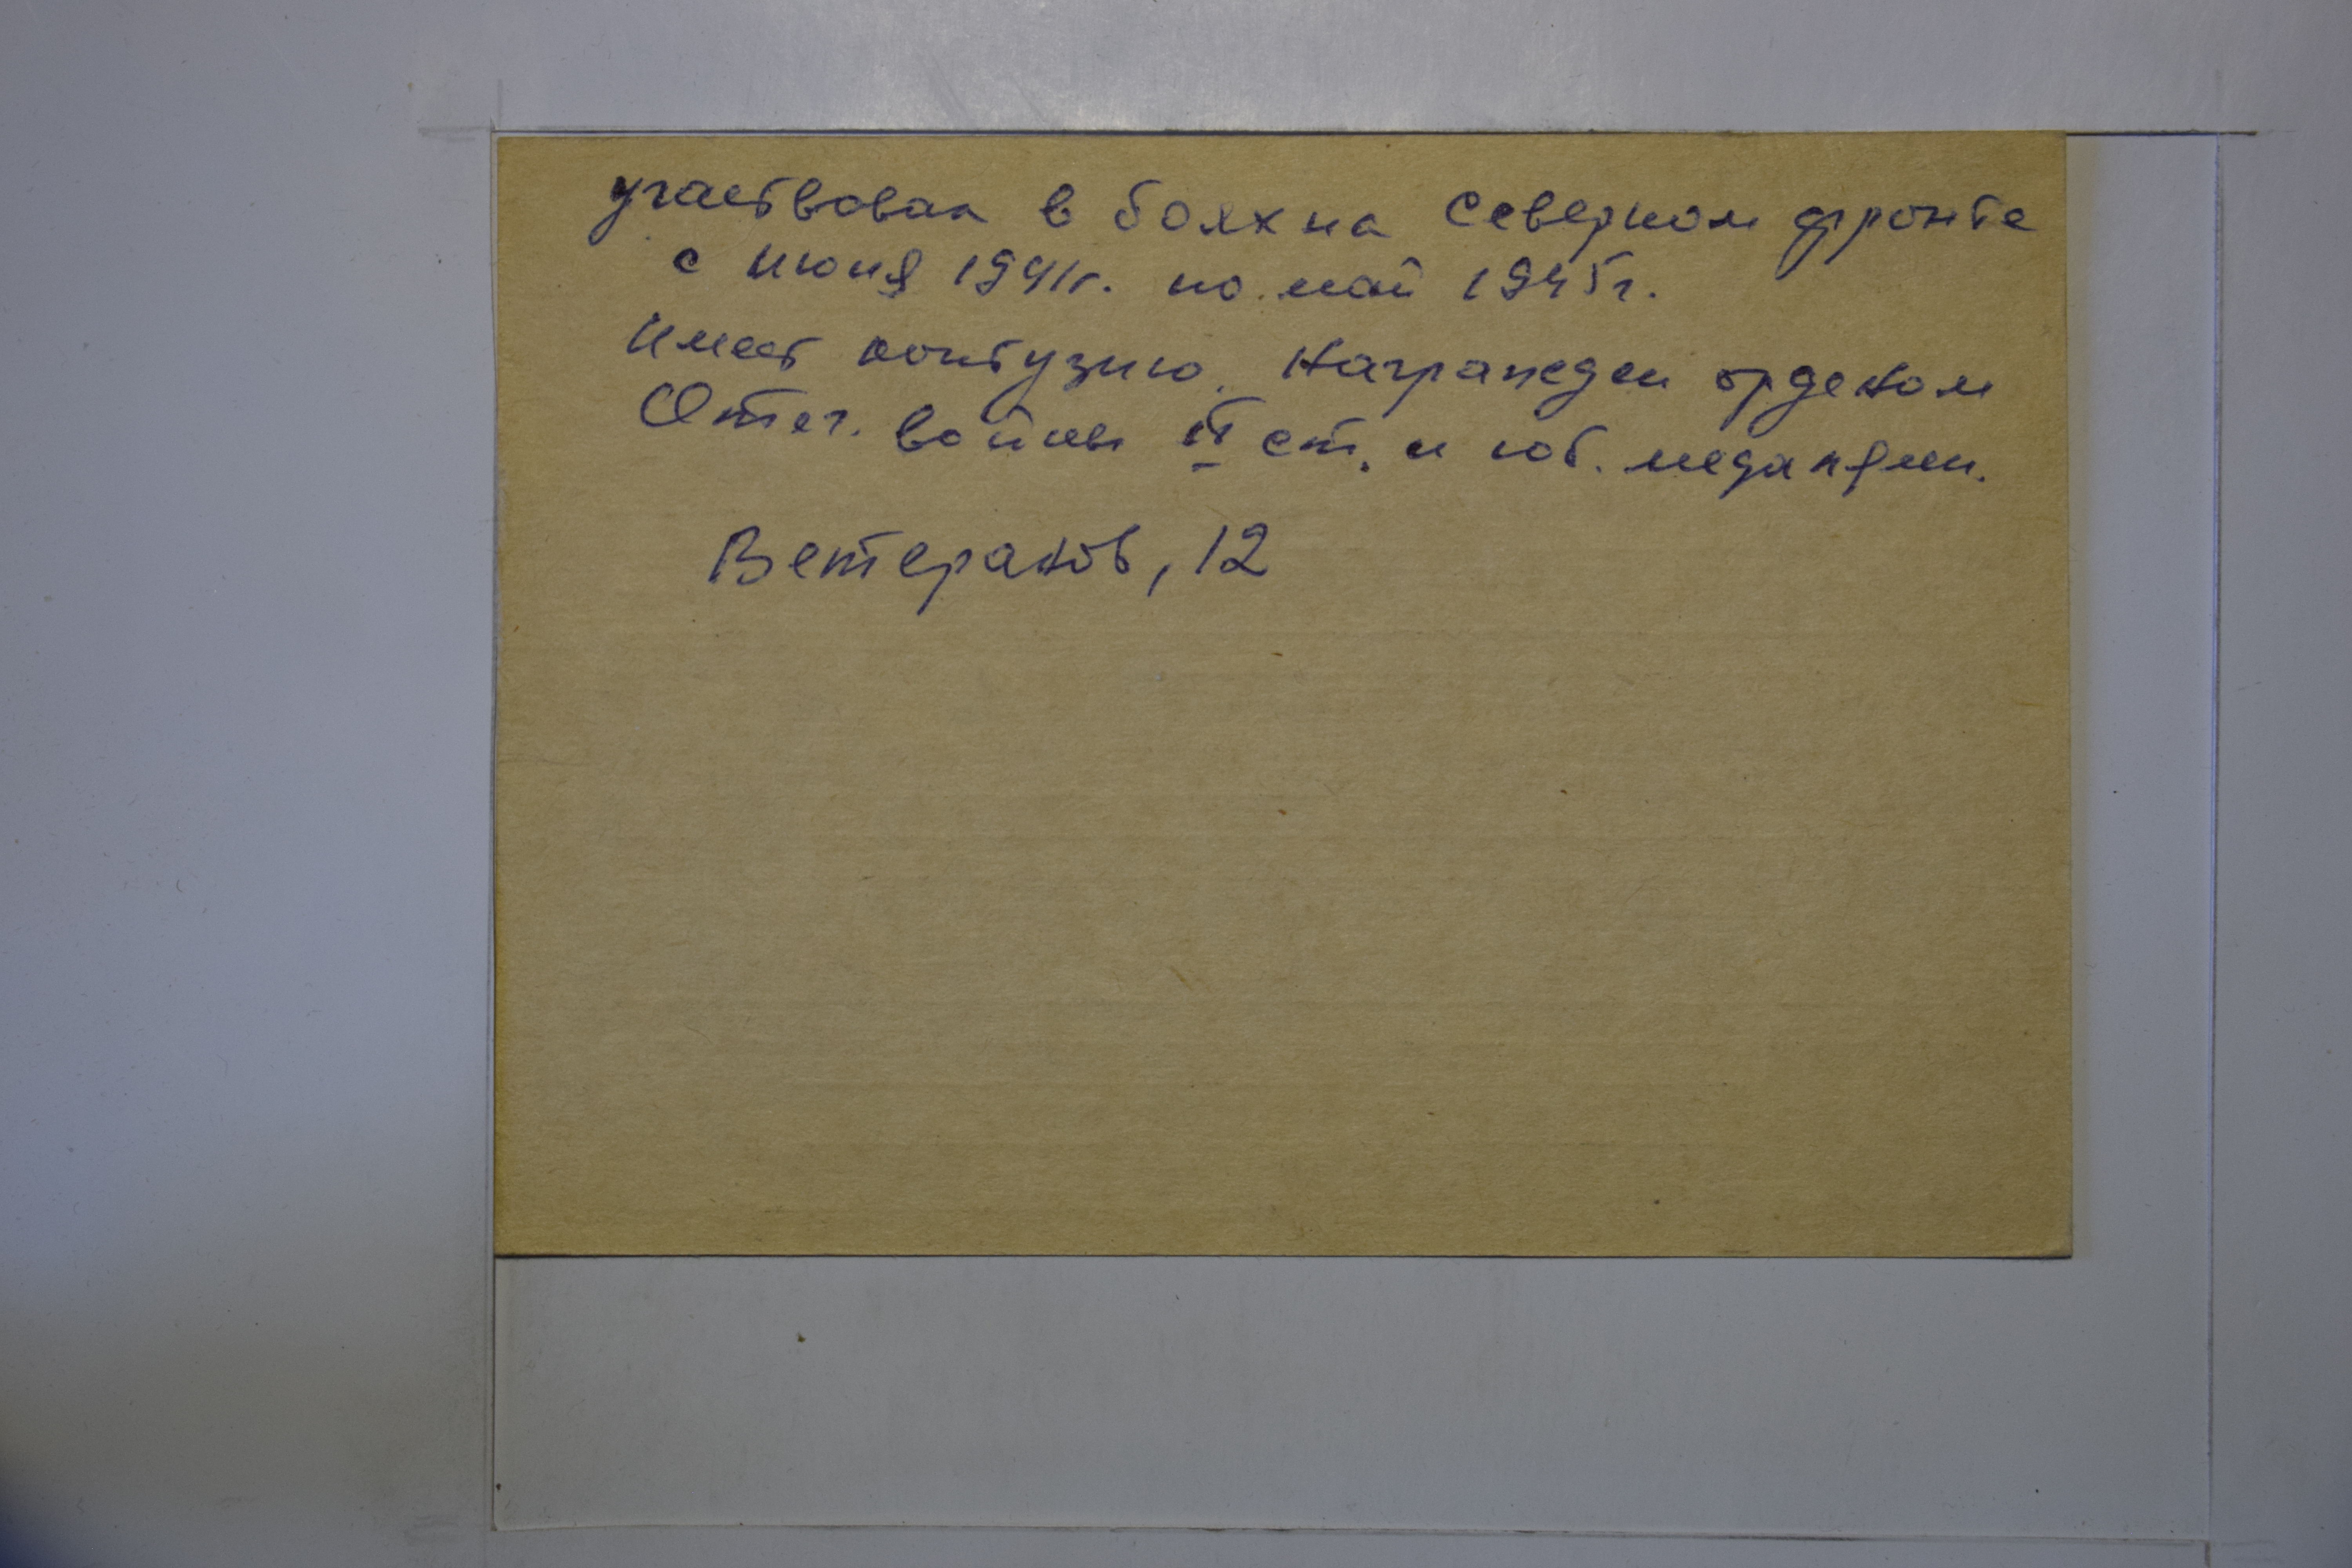 участвовал в боях на Северном фронте
с июня 1941г. по май 1945г.
Имеет контузию. Награжден орденом
Отеч. войны II ст. и юб. медалями.
Ветеранов, 12